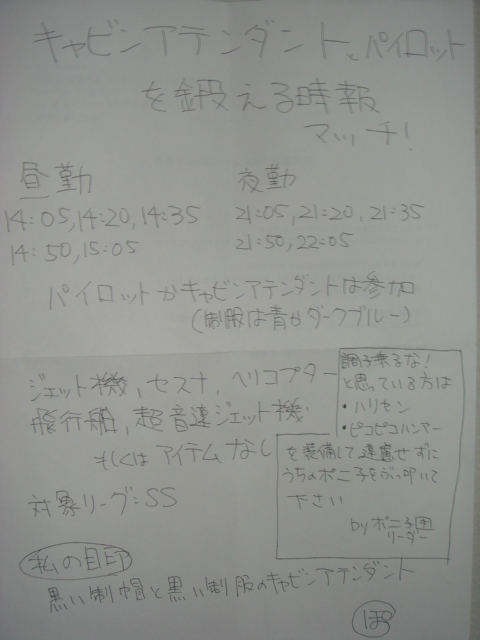 キャビンアテンダントとパイロット
を鍛える時報
マッチ!
昼勤
14:05,14:20,14:35
14:50,15:05
夜勤
21:05,21:20,21:35
21:50,22:05
パイロットかキャビンアテンダントは参加
(制服は青かダークブルー)
ジェット機,セスナ,ヘリコプター
飛行船,超音速ジェット機
もしくはアイテムなし
対象リーグ:SS
調子乗るな!
と思っている方は
・ハリセン
・ピコピコハンマー
を装備して遠慮せずに
うちのポニ子をぶっ叩いて
下さい
byポニ子団
リーダー
私の目印
黒い制帽と黒い制服のキャビンアテンダント